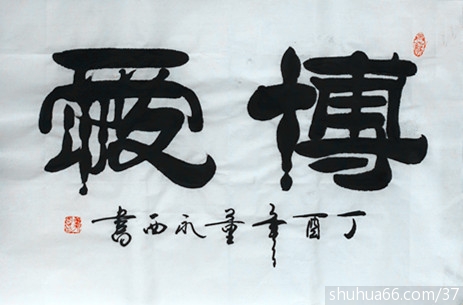 博愛
丁酉年董永西書
shuhua66.com/37